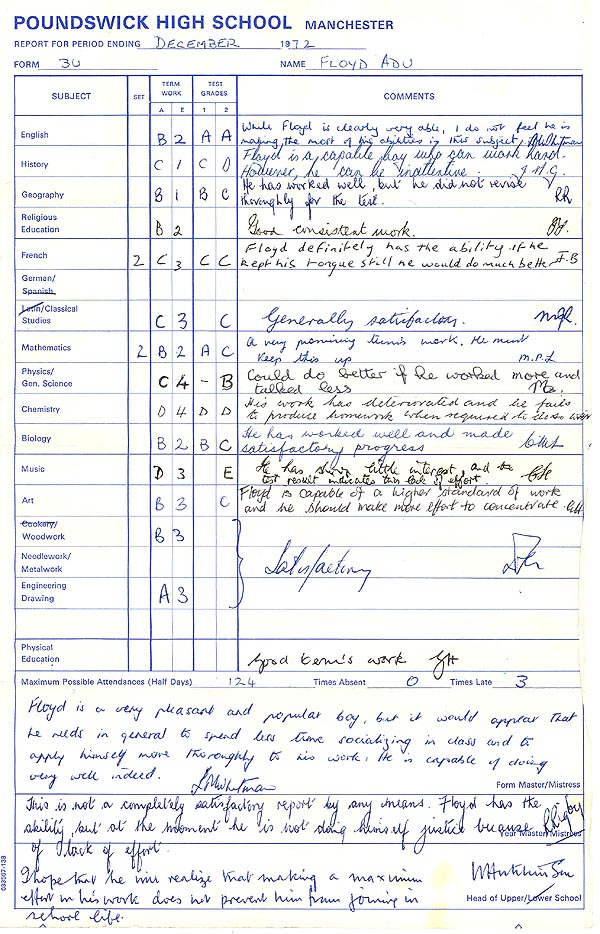 POUNDSWICK HIGH SCHOOL MANCHESTER
REPORT FOR PERIOD ENDING DECEMBER 1972
FORM 3U NAME FLOYD ADU
SUBJECT SET TERM WORK TEST GRADES COMMENTS
A E 1 2
English B 2 A A While Floyd is clearly very able, I do not feel he is
making the most of his abilities in this subject.
History C 1 C D Floyd is a capable boy who can work hard.
However, he can be inattentive.
Geography B 1 B C He has worked well, but he did not revise
thoroughly for the test. RR
Religious Education B 2 Good consistent work.
French 2 C 3 C C Floyd definitely has the ability if he
kept his tongue still he would do much better
German/
Spanish
Latin/Classical Studies C 3 C Generally satisfactory.
Mathematics 2 B 2 A C A very promising term's work. He must
keep this up M.P.L
Physics/
Gen. Science C 4 - B Could do better if he worked more and
talked less
Chemistry D 4 D D His work has deteriorated and he fails
to produce homework when required to do so
Biology B 2 B C He has worked well and made
satisfactory progress
Music D 3 E He has shown little interest, and the
test result indicates this lack of effort.
Art B 3 C Floyd is capable of a higher standard of work
and he should make more effort to concentrate.
Cookery/
Woodwork B 3
Needlework/
Metalwork Satisfactory
Engineering
Drawing A 3
Physical
Education Good term's work GH
Maximum Possible Attendances (Half Days) 124 Times Absent 0 Times Late 3
Floyd is a very pleasant and popular boy, but it would appear that
he needs in general to spend less time socializing in class and to
apply himself more thoroughly to his work. He is capable of doing
very well indeed.
Form Master/Mistress
This is not a completely satisfactory report by any means. Floyd has the
ability, but at the moment he is not doing himself justice because
Year Master/Mistress
of lack of effort.
I hope that he will realize that making a maximum
effort in his work does not prevent him from joining in
Head of Upper/Lower School
school life.
633507-138